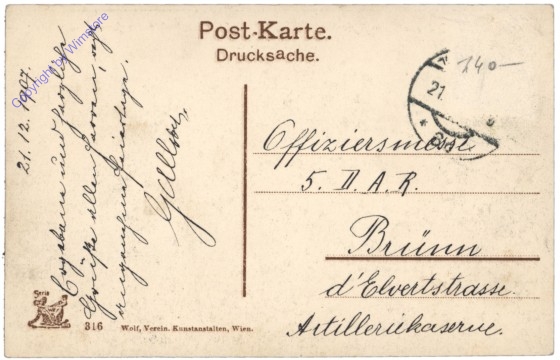 Post-Karte.
Drucksache.
Copyright by Wimstore
140—
21.
21. 12. 1907.
Ergebene und herzliche
Grüße allen Herren, sagt
angenehme Feiertage.
Offiziersmesse
5. D. A. R.
Brünn
d'Elvertstrasse
Artilleriekaserne.
Serie
316 Wolf, Verein. Kunstanstalten, Wien.